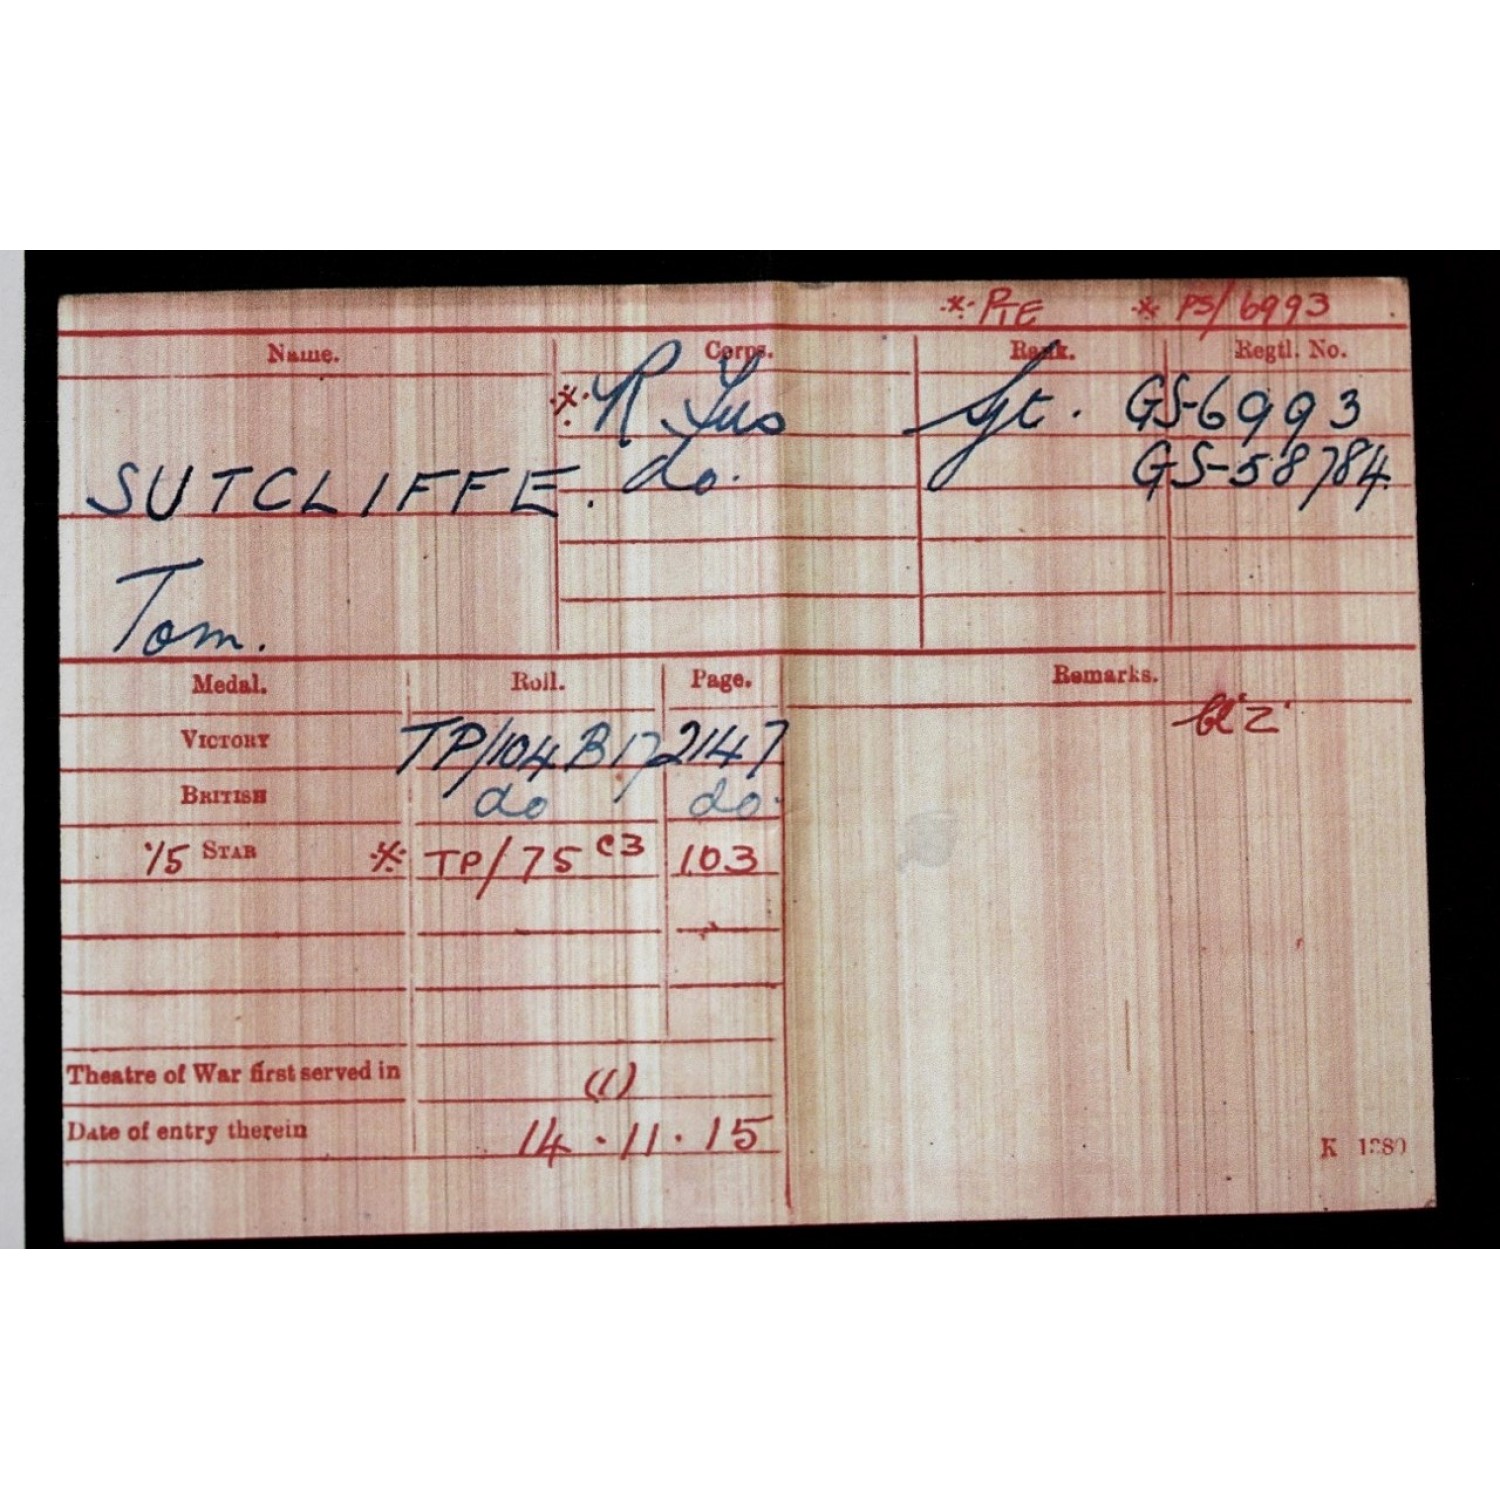 ※ PTE ※ PS/6993
Name. Corps. Rank. Regtl. No.
※ R. Fus Sgt. GS-6993
SUTCLIFFE. do. GS-58784
Tom.
Medal. Roll. Page. Remarks.
VICTORY TP/104 B17 2147
BRITISH do do.
'15 STAR ※ TP/75 C3 103
Theatre of War first served in (1)
Date of entry therein 14.11.15
K 1380